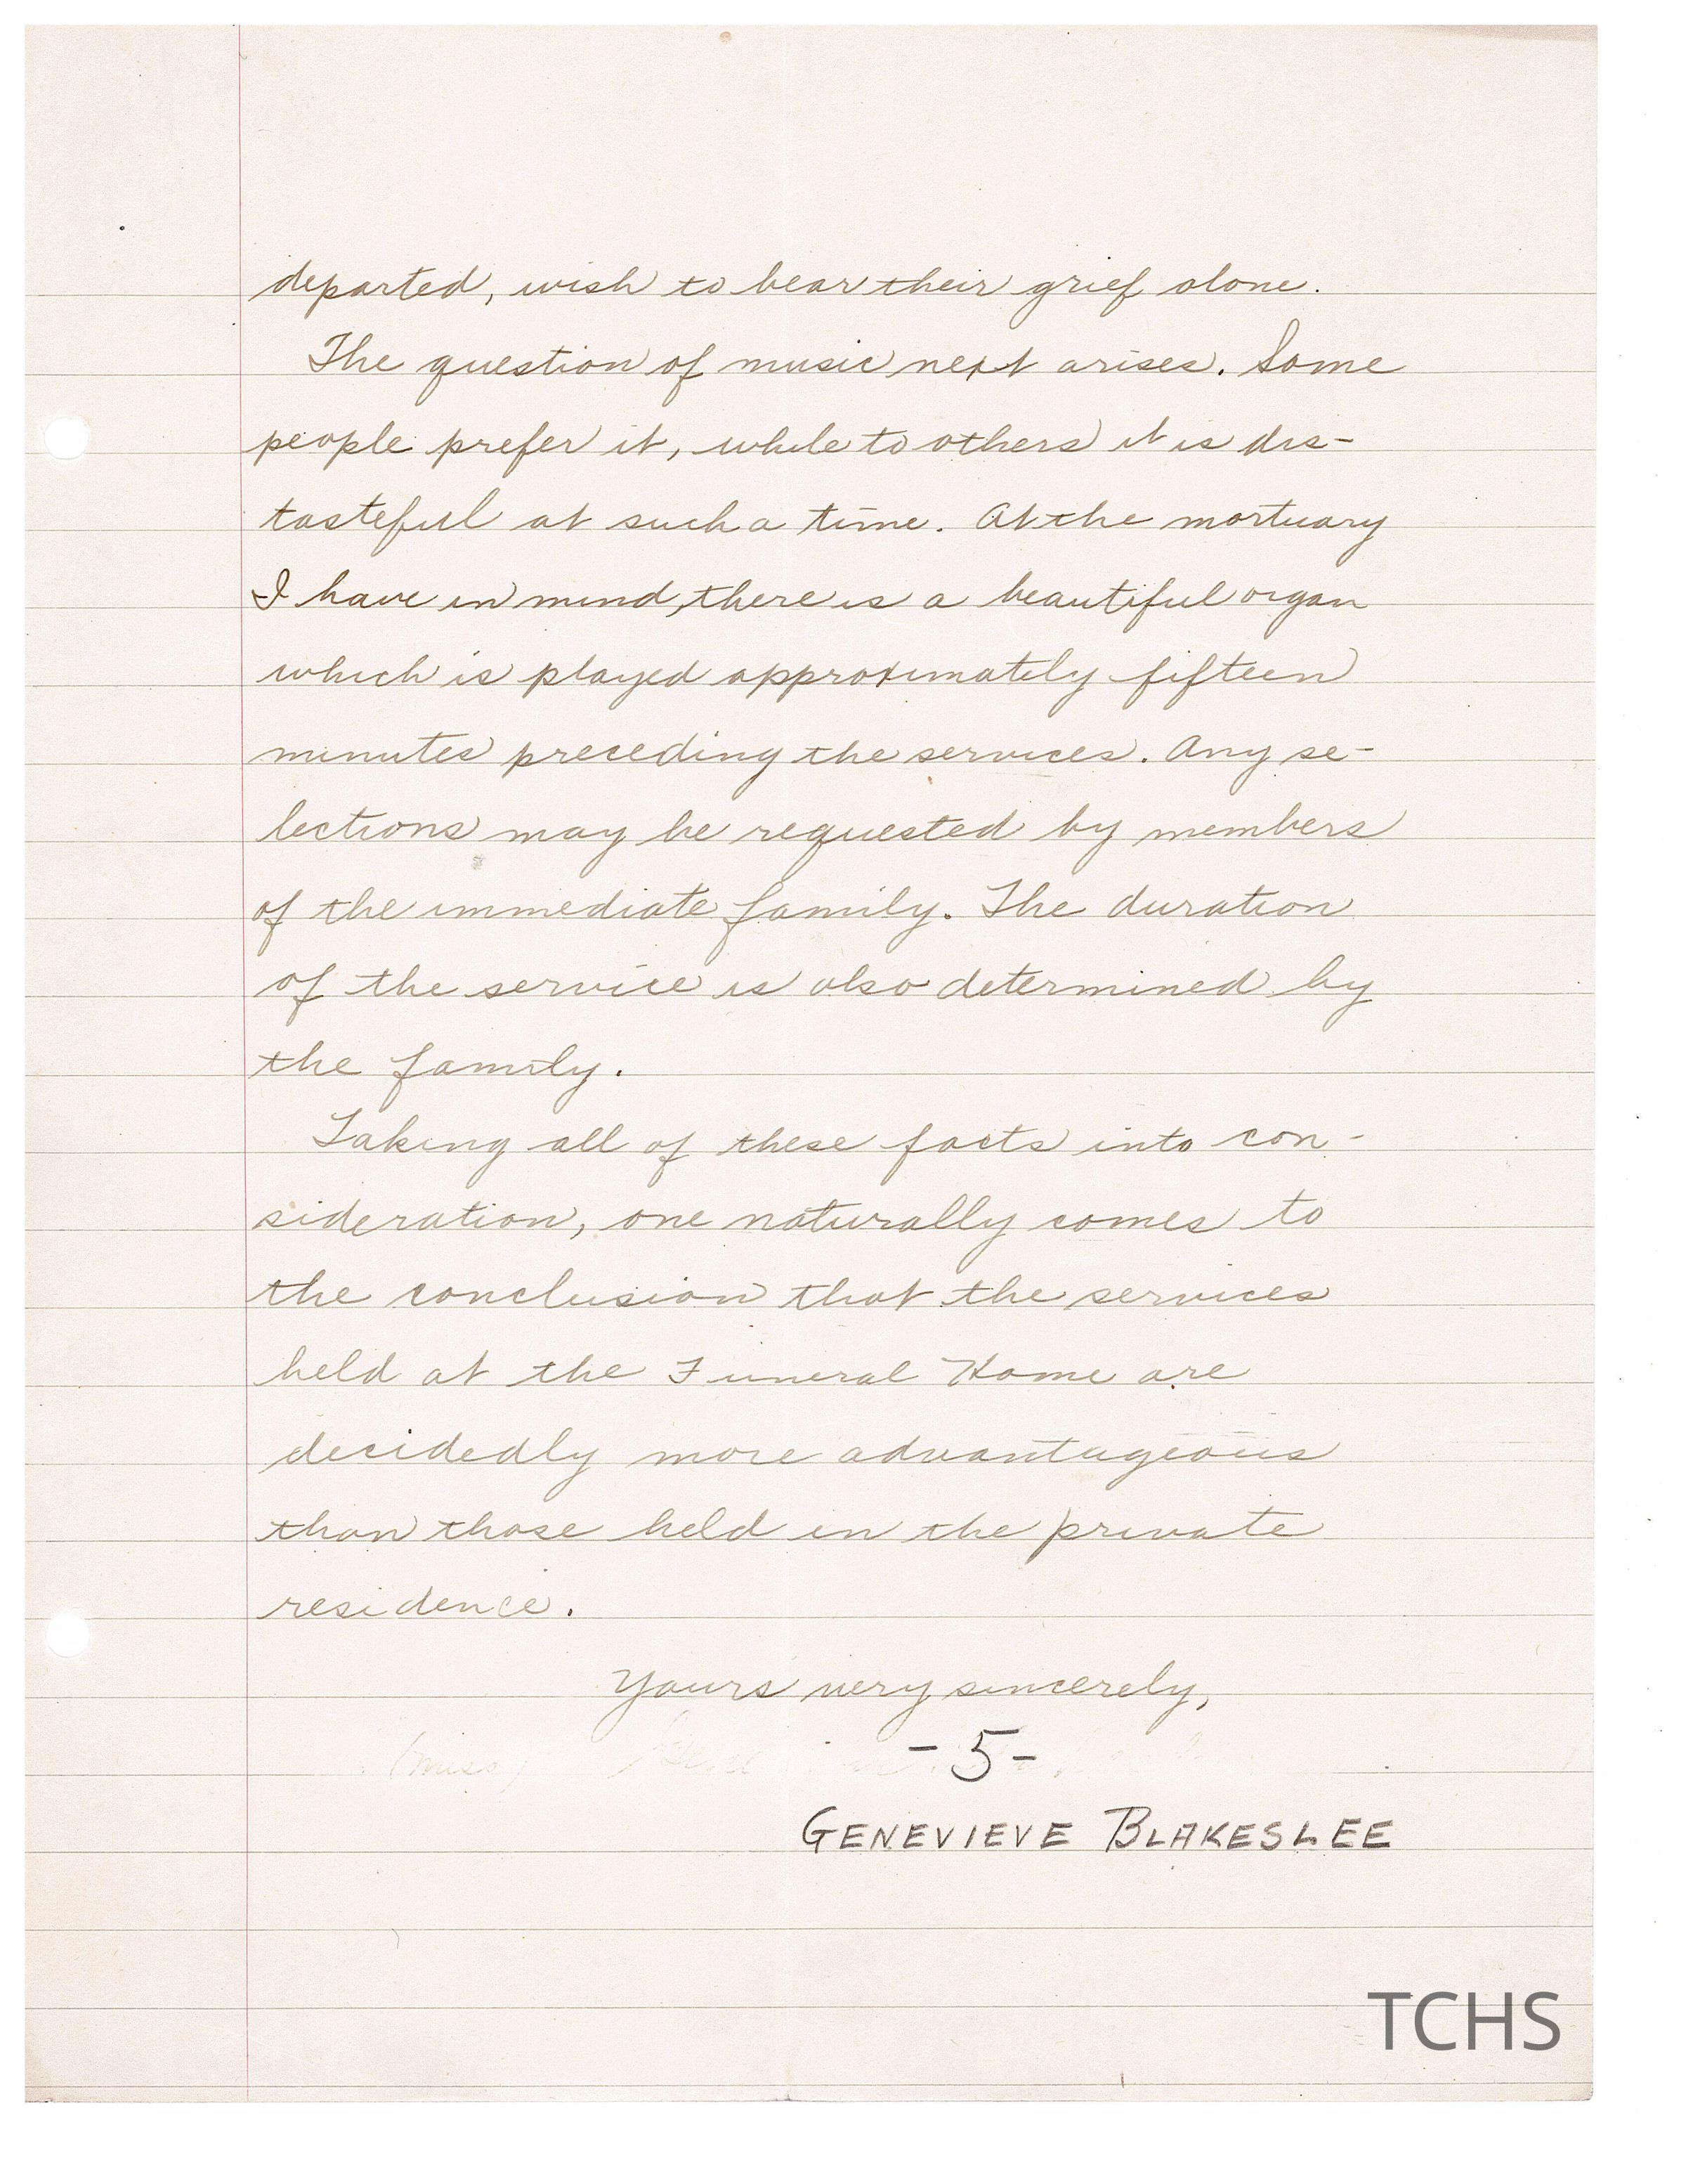 departed, wish to bear their grief alone.
The question of music next arises. Some
people prefer it, while to others it is dis-
tasteful at such a time. At the mortuary
I have in mind, there is a beautiful organ
which is played approximately fifteen
minutes preceding the services. Any se-
lections may be requested by members
of the immediate family. The duration
of the service is also determined by
the family.
Taking all of these facts into con-
sideration, one naturally comes to
the conclusion that the services
held at the Funeral Home are
decidedly more advantageous
than those held in the private
residence.
Yours very sincerely,
(miss)
-5-
GENEVIEVE BLAKESLEE
TCHS